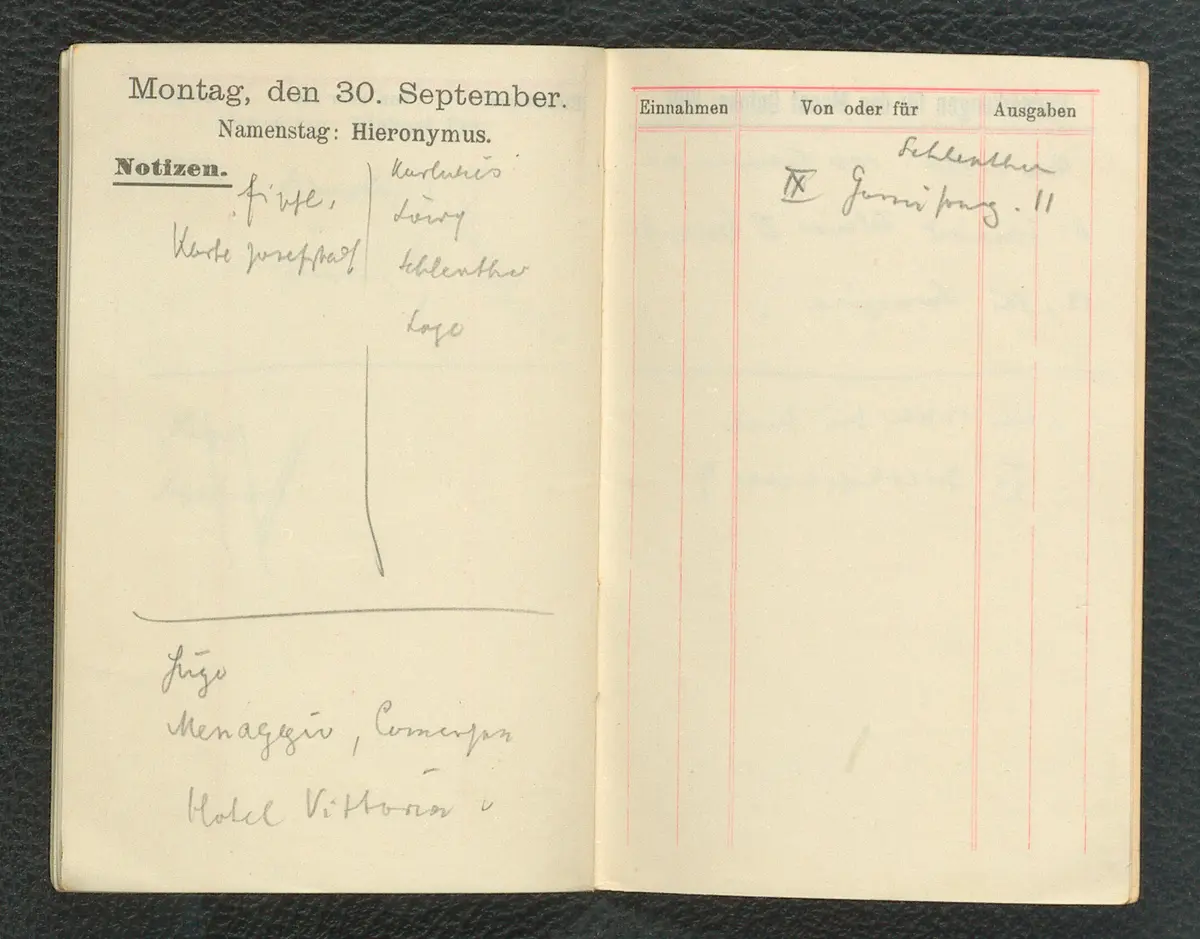 Montag, den 30. September.
Namenstag: Hieronymus.
Notizen.
Karte Josefstadt
Karlweis
Löwy
Schlenther
Loge
Hugo
Menaggio, Comersee
Hotel Vittoria
Einnahmen Von oder für Ausgaben
Schlenther
IX 11